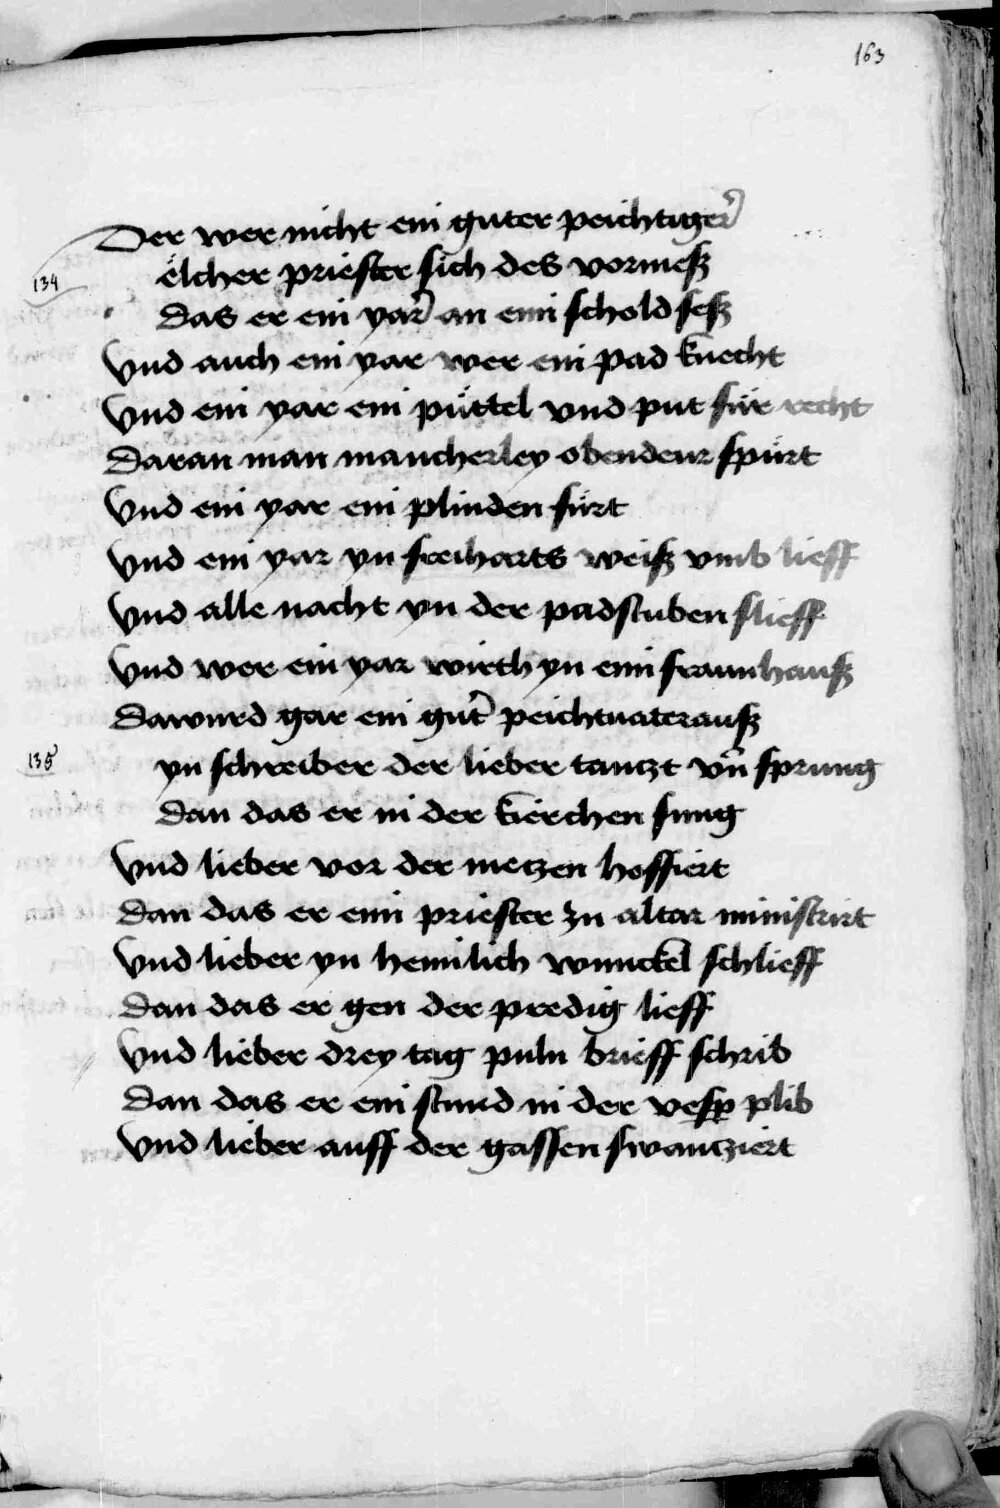 163
Der wer nicht ein guter peichtiger
134
ëlcher priester sich des vormeß
Das er ein yar an eim schold seß
Vnd auch ein yar wer ein pad knecht
Vnd ein yar ein püttel vnd put für recht
Daran man mancherley obendeur spürt
Vnd ein yar ein plinden fürt
Vnd ein yar yn freiharts weiß vmb lieff
Vnd alle nacht yn der padstuben slieff
Vnd wer ein yar wirth yn eim fraunhauß
Dawurd gar ein gut̉ peichtuaterauß
135
yn schreiber der lieber tanczt vn̄ sprung
Dan das er in der kirchen sung
Vnd lieber vor der meczen hoffiert
Dan das er eim priester zu altar ministrirt
Vnd lieber yn heimlich winckel schlieff
Dan das er gen der predig lieff
Vnd lieber drey tag puln brieff schrib
Dan das er ein stund in der vesp plib
Vnd lieber auff der gassen swancziert